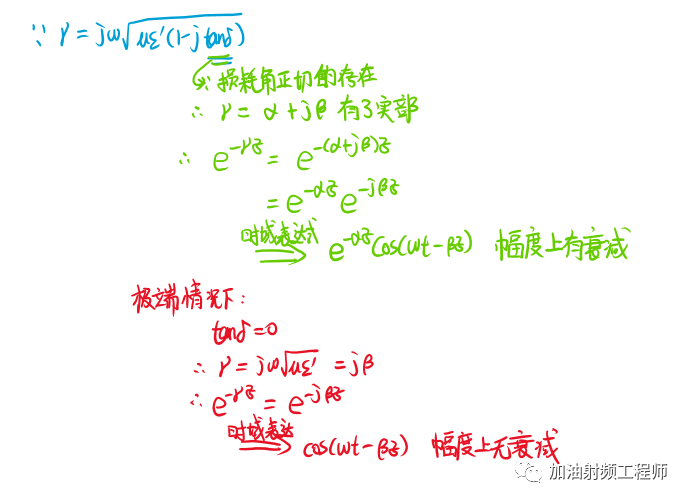 ∵ γ = jω√με'(1-jtanδ)
∵ 损耗角正切的存在
∴ γ = α+jβ 有了实部
∴ e^-γz = e^-(α+jβ)z
= e^-αz e^-jβz
时域表达式 ⟹ e^-αz cos(ωt-βz) 幅度上有衰减
极端情况下:
tanδ=0
∴ γ = jω√με' = jβ
∴ e^-γz = e^-jβz
时域表达 ⟹ cos(ωt-βz) 幅度上无衰减
加油射频工程师